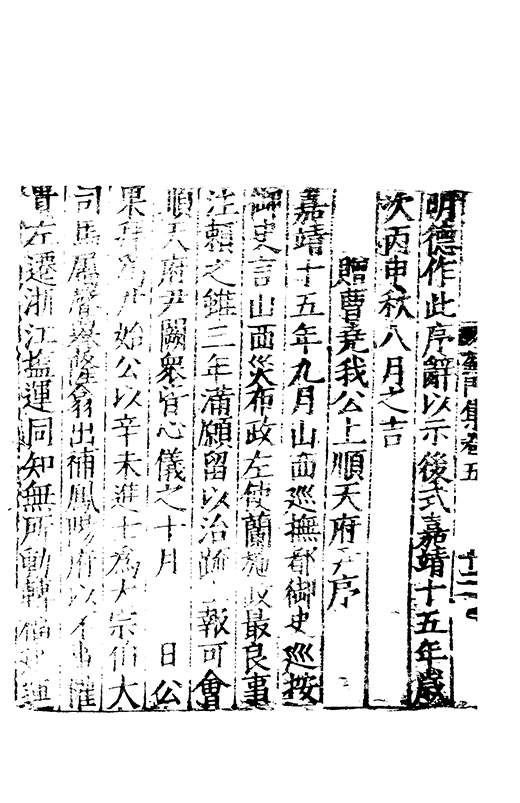 明德作此序辭以示後式嘉靖十五年歲
次丙申秋八月之吉
贈曹堯我公上順天府尹序
嘉靖十五年九月山西巡撫都御史巡按
御史言山西災布政左使蘭施政最良事
注賴之雖三年滿願留以治疏上報可會
順天府尹闕衆皆心儀之十月 日公
果拜為尹始公以辛未進士為大宗伯大
司馬屬聲譽出補鳳陽府以不
左遷浙江塩運同知無所動轉
集卷五
十二